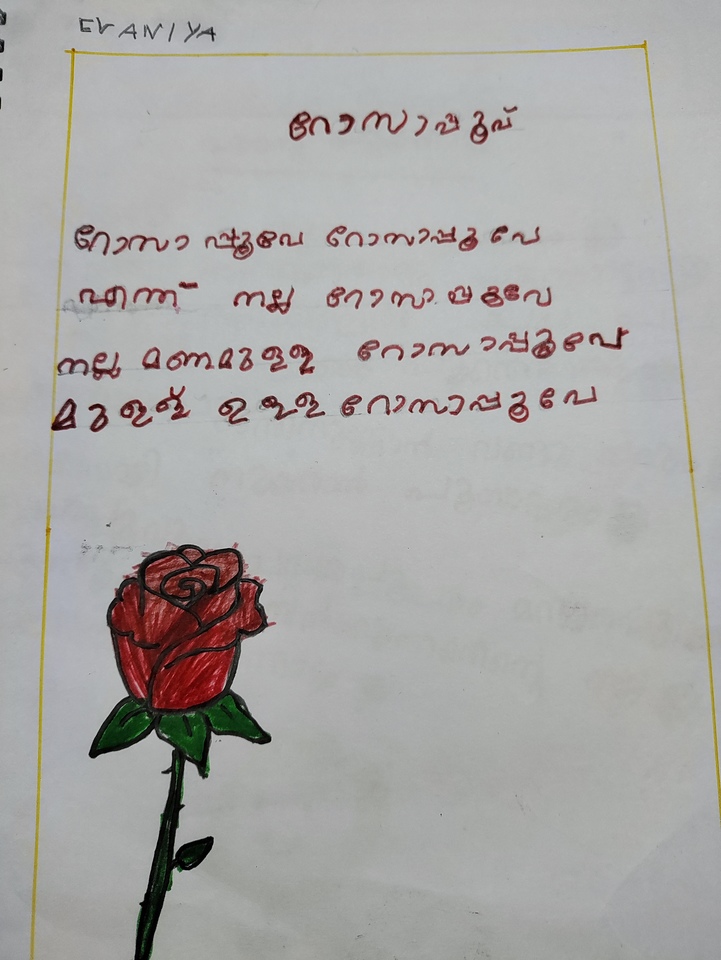 EVANIYA
റോസാപ്പൂവ്
റോസാ പ്പൂവേ റോസാപ്പൂ വേ
എന്ത് നല്ല റോസാപ്പൂവേ
നല്ല മണമുള്ള റോസാപ്പൂവേ
മുള്ള് ഉള്ള റോസാപ്പൂവേ